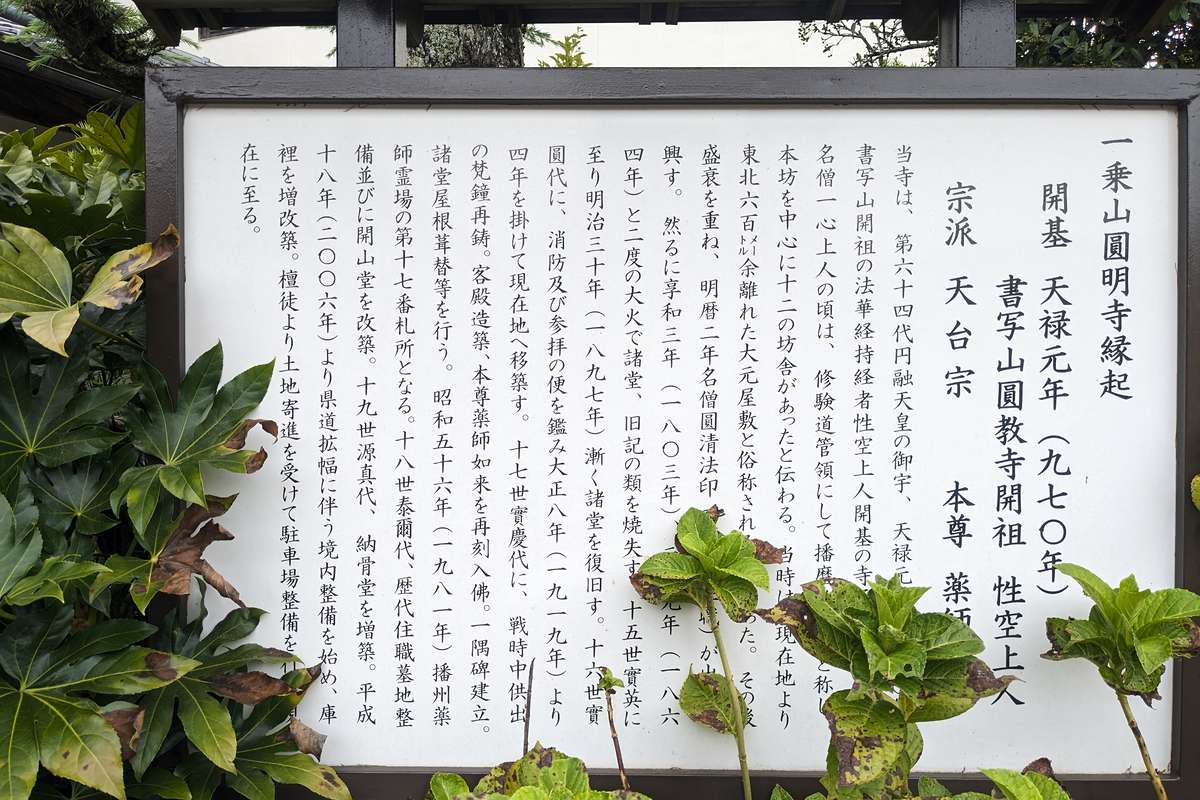 一乗山圓明寺縁起
開基 天禄元年（九七〇年）
書写山圓教寺開祖 性空上人
宗派 天台宗 本尊 薬師
当寺は、第六十四代円融天皇の御宇、天禄元
書写山開祖の法華経持経者性空上人開基の寺
名僧一心上人の頃は、修験道管領にして播 と称し
本坊を中心に十二の坊舎があったと伝わる。当時は現在地より
東北六百メートル余離れた大元屋敷と俗称され った。その後
盛衰を重ね、明暦二年名僧圓清法印 が
興す。然るに享和三年（一八〇三年） 元年（一八六
四年）と二度の大火で諸堂、旧記の類を焼失す 十五世實英に
至り明治三十年（一八九七年）漸く諸堂を復旧す。十六世實
圓代に、消防及び参拝の便を鑑み大正八年（一九一九年）より
四年を掛けて現在地へ移築す。十七世實慶代に、戦時中供出
の梵鐘再鋳。客殿造築、本尊薬師如来を再刻入佛。一隅碑建立。
諸堂屋根葺替等を行う。昭和五十六年（一九八一年）播州薬
師霊場の第十七番札所となる。十八世泰爾代、歴代住職墓地整
備並びに開山堂を改築。十九世源真代、納骨堂を増築。平成
十八年（二〇〇六年）より県道拡幅に伴う境内整備を始め、庫
裡を増改築。檀徒より土地寄進を受けて駐車場整備を
在に至る。